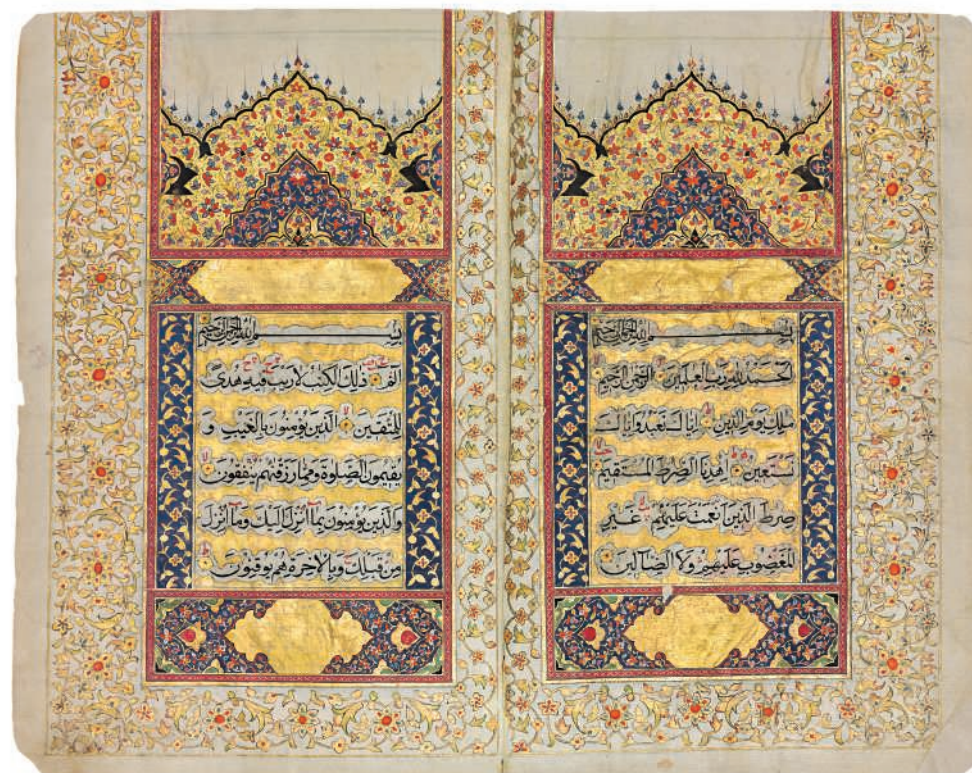 بسم الله الرحمن الرحيم
الحمد لله رب العلمين الرحمن الرحيم
ملك يوم الدين اياك نعبد واياك
نستعين اهدنا الصرط المستقيم
صرط الذين انعمت عليهم غير
المغضوب عليهم ولا الضالين
بسم الله الرحمن الرحيم
الم ذلك الكتب لا ريب فيه هدى
للمتقين الذين يؤمنون بالغيب و
يقيمون الصلوة ومما رزقنهم ينفقون
والذين يؤمنون بما انزل اليك وما انزل
من قبلك وبالاخرة هم يوقنون